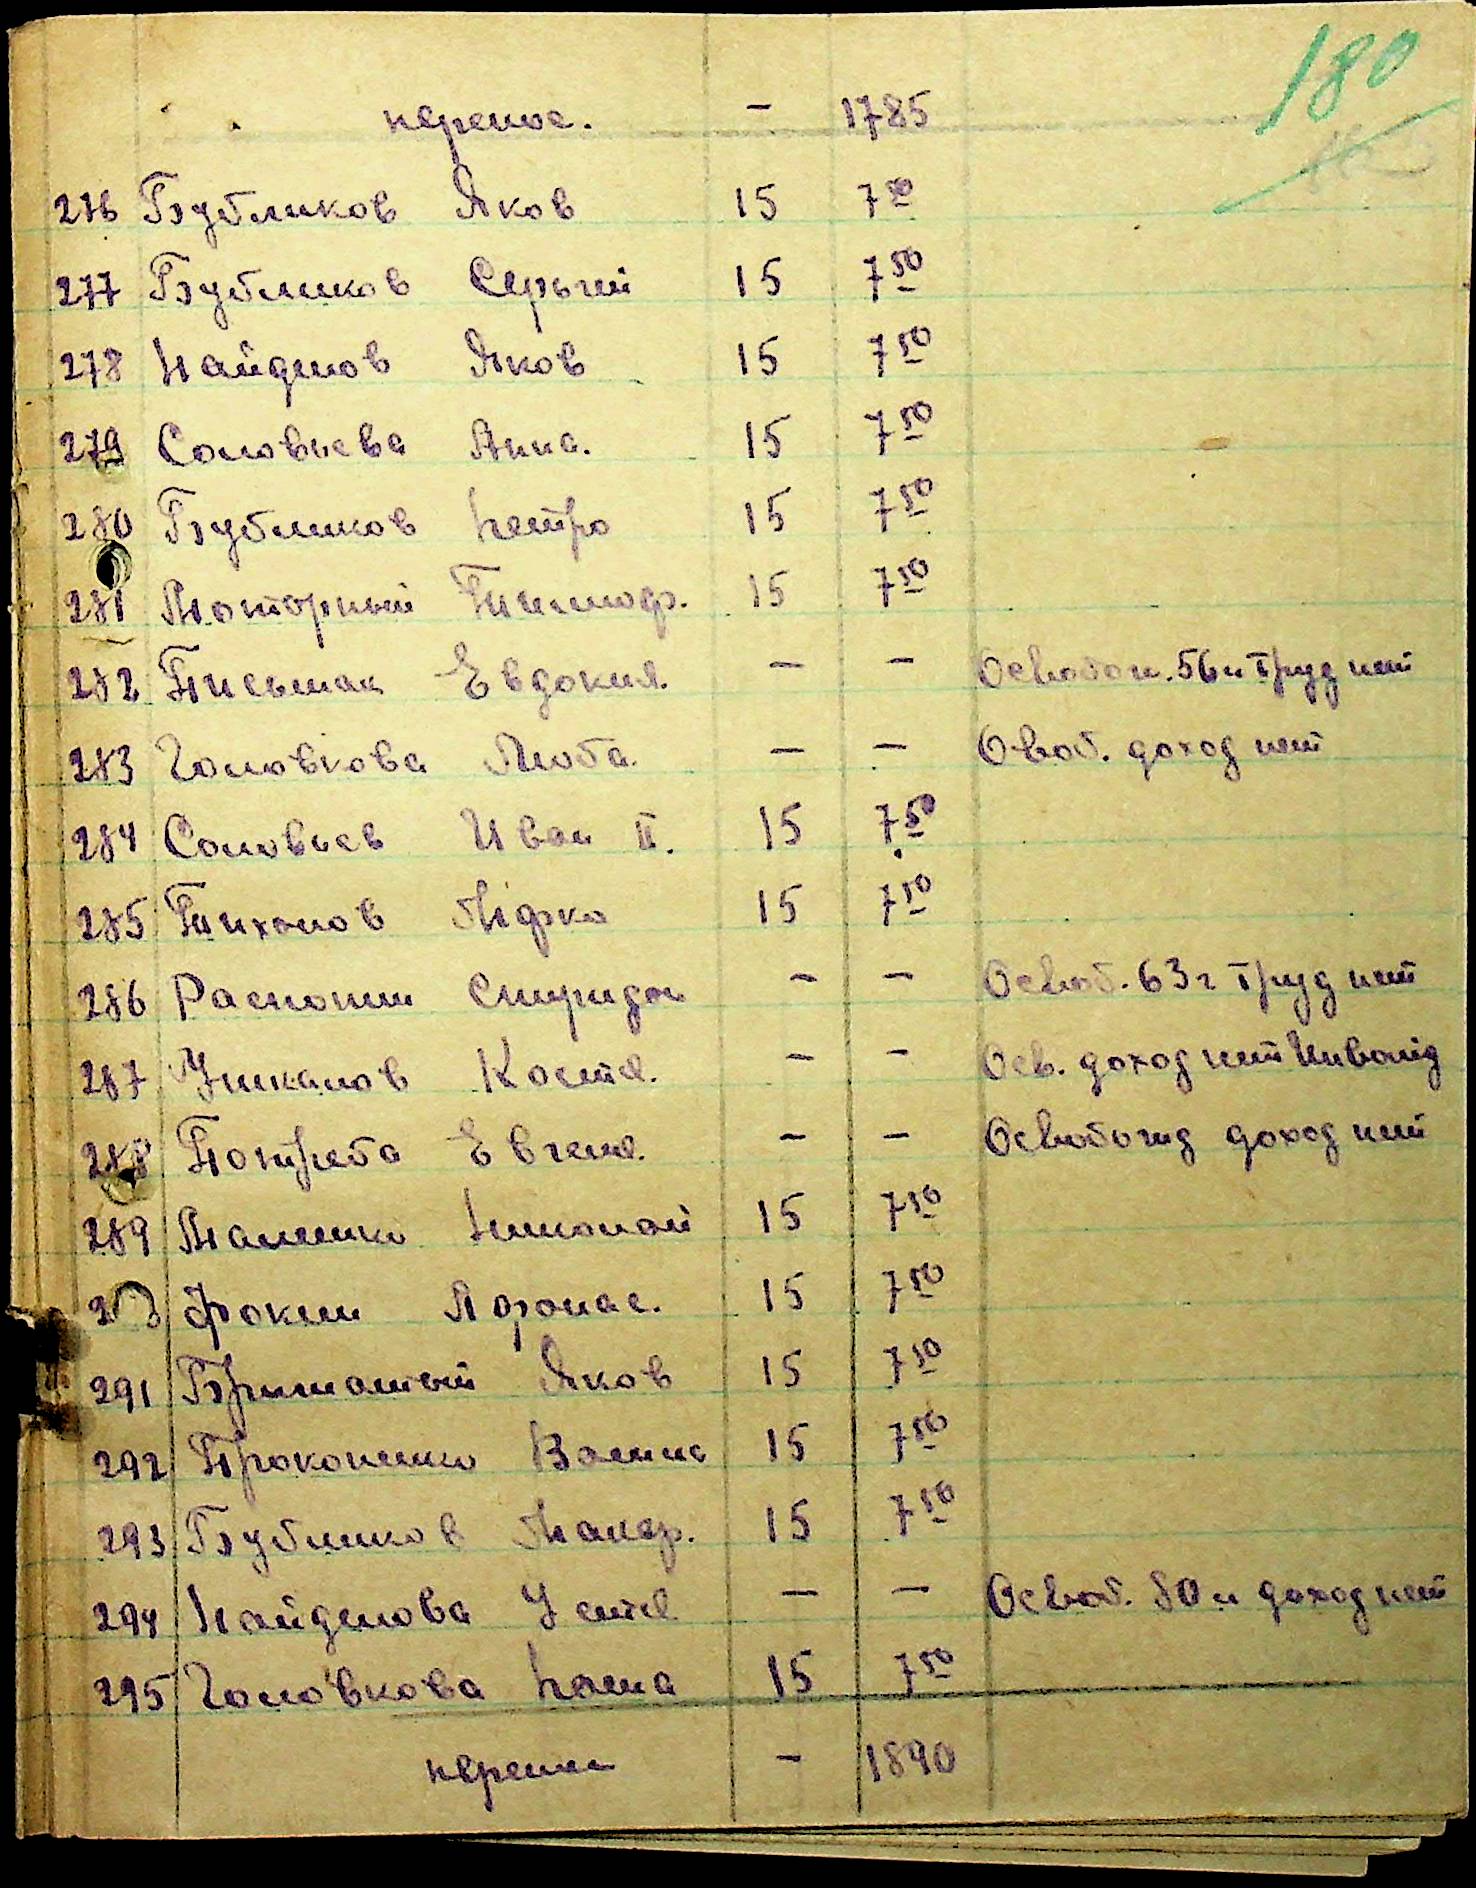 180
перенос. – 1785
276 Бубликов Яков 15 7 50
277 Бубликов Сергий 15 7 50
278 Найденов Яков 15 7 50
279 Соловьева Анна. 15 7 50
280 Бубликов Петро 15 7 50
281 Моторный Тимоф. 15 7 50
282 Письмак Евдокия. – – Освобож. 56 л труд нет
283 Головкова Люба. – – Овоб. доход нет
284 Соловьев Иван II. 15 7 50
285 Тихонов 15 7 50
286 Распопин Спиридон – – Освоб. 63 г труд нет
287 Костя. – – Осв. доход нет Инвалід
288 Потреба Евгения. – – Освобожд доход нет
289 Маленко Николай 15 7 50
Фокин Афонас. 15 7 50
291 Яков 15 7 50
292 Прокопенко 15 7 50
293 Бубликов Макар. 15 7 50
294 Найденова Устя – – Освоб. 80 л доход нет
295 Головкова Паша 15 7 50
перенос – 1890